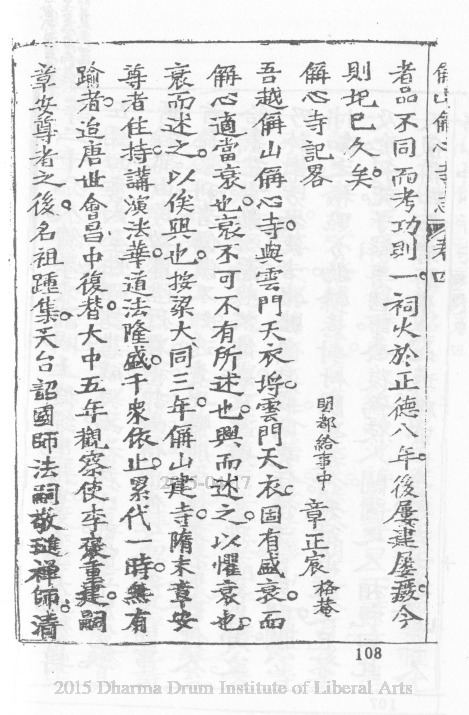 偁山偁心寺志 卷四
者品不同而考功則一祠火於正德八年後屢建屢燬今
則圯已久矣
偁心寺記畧
明都給事中 章正宸 格菴
吾越偁山偁心寺與雲門天衣埒雲門天衣固有盛衰而
偁心適當衰也衰不可不有所述也興而述之以懼衰也
衰而述之以俟興也按梁大同三年偁山建寺隋末章安
尊者住持講演法華道法隆盛千衆依止累代一時無有
踰者迨唐世會昌中復替大中五年觀察使李褒重建嗣
章安尊者之後名祖踵集天台韶國師法嗣敬璡禪師清
108
2015 Dharma Drum Institute of Liberal Arts